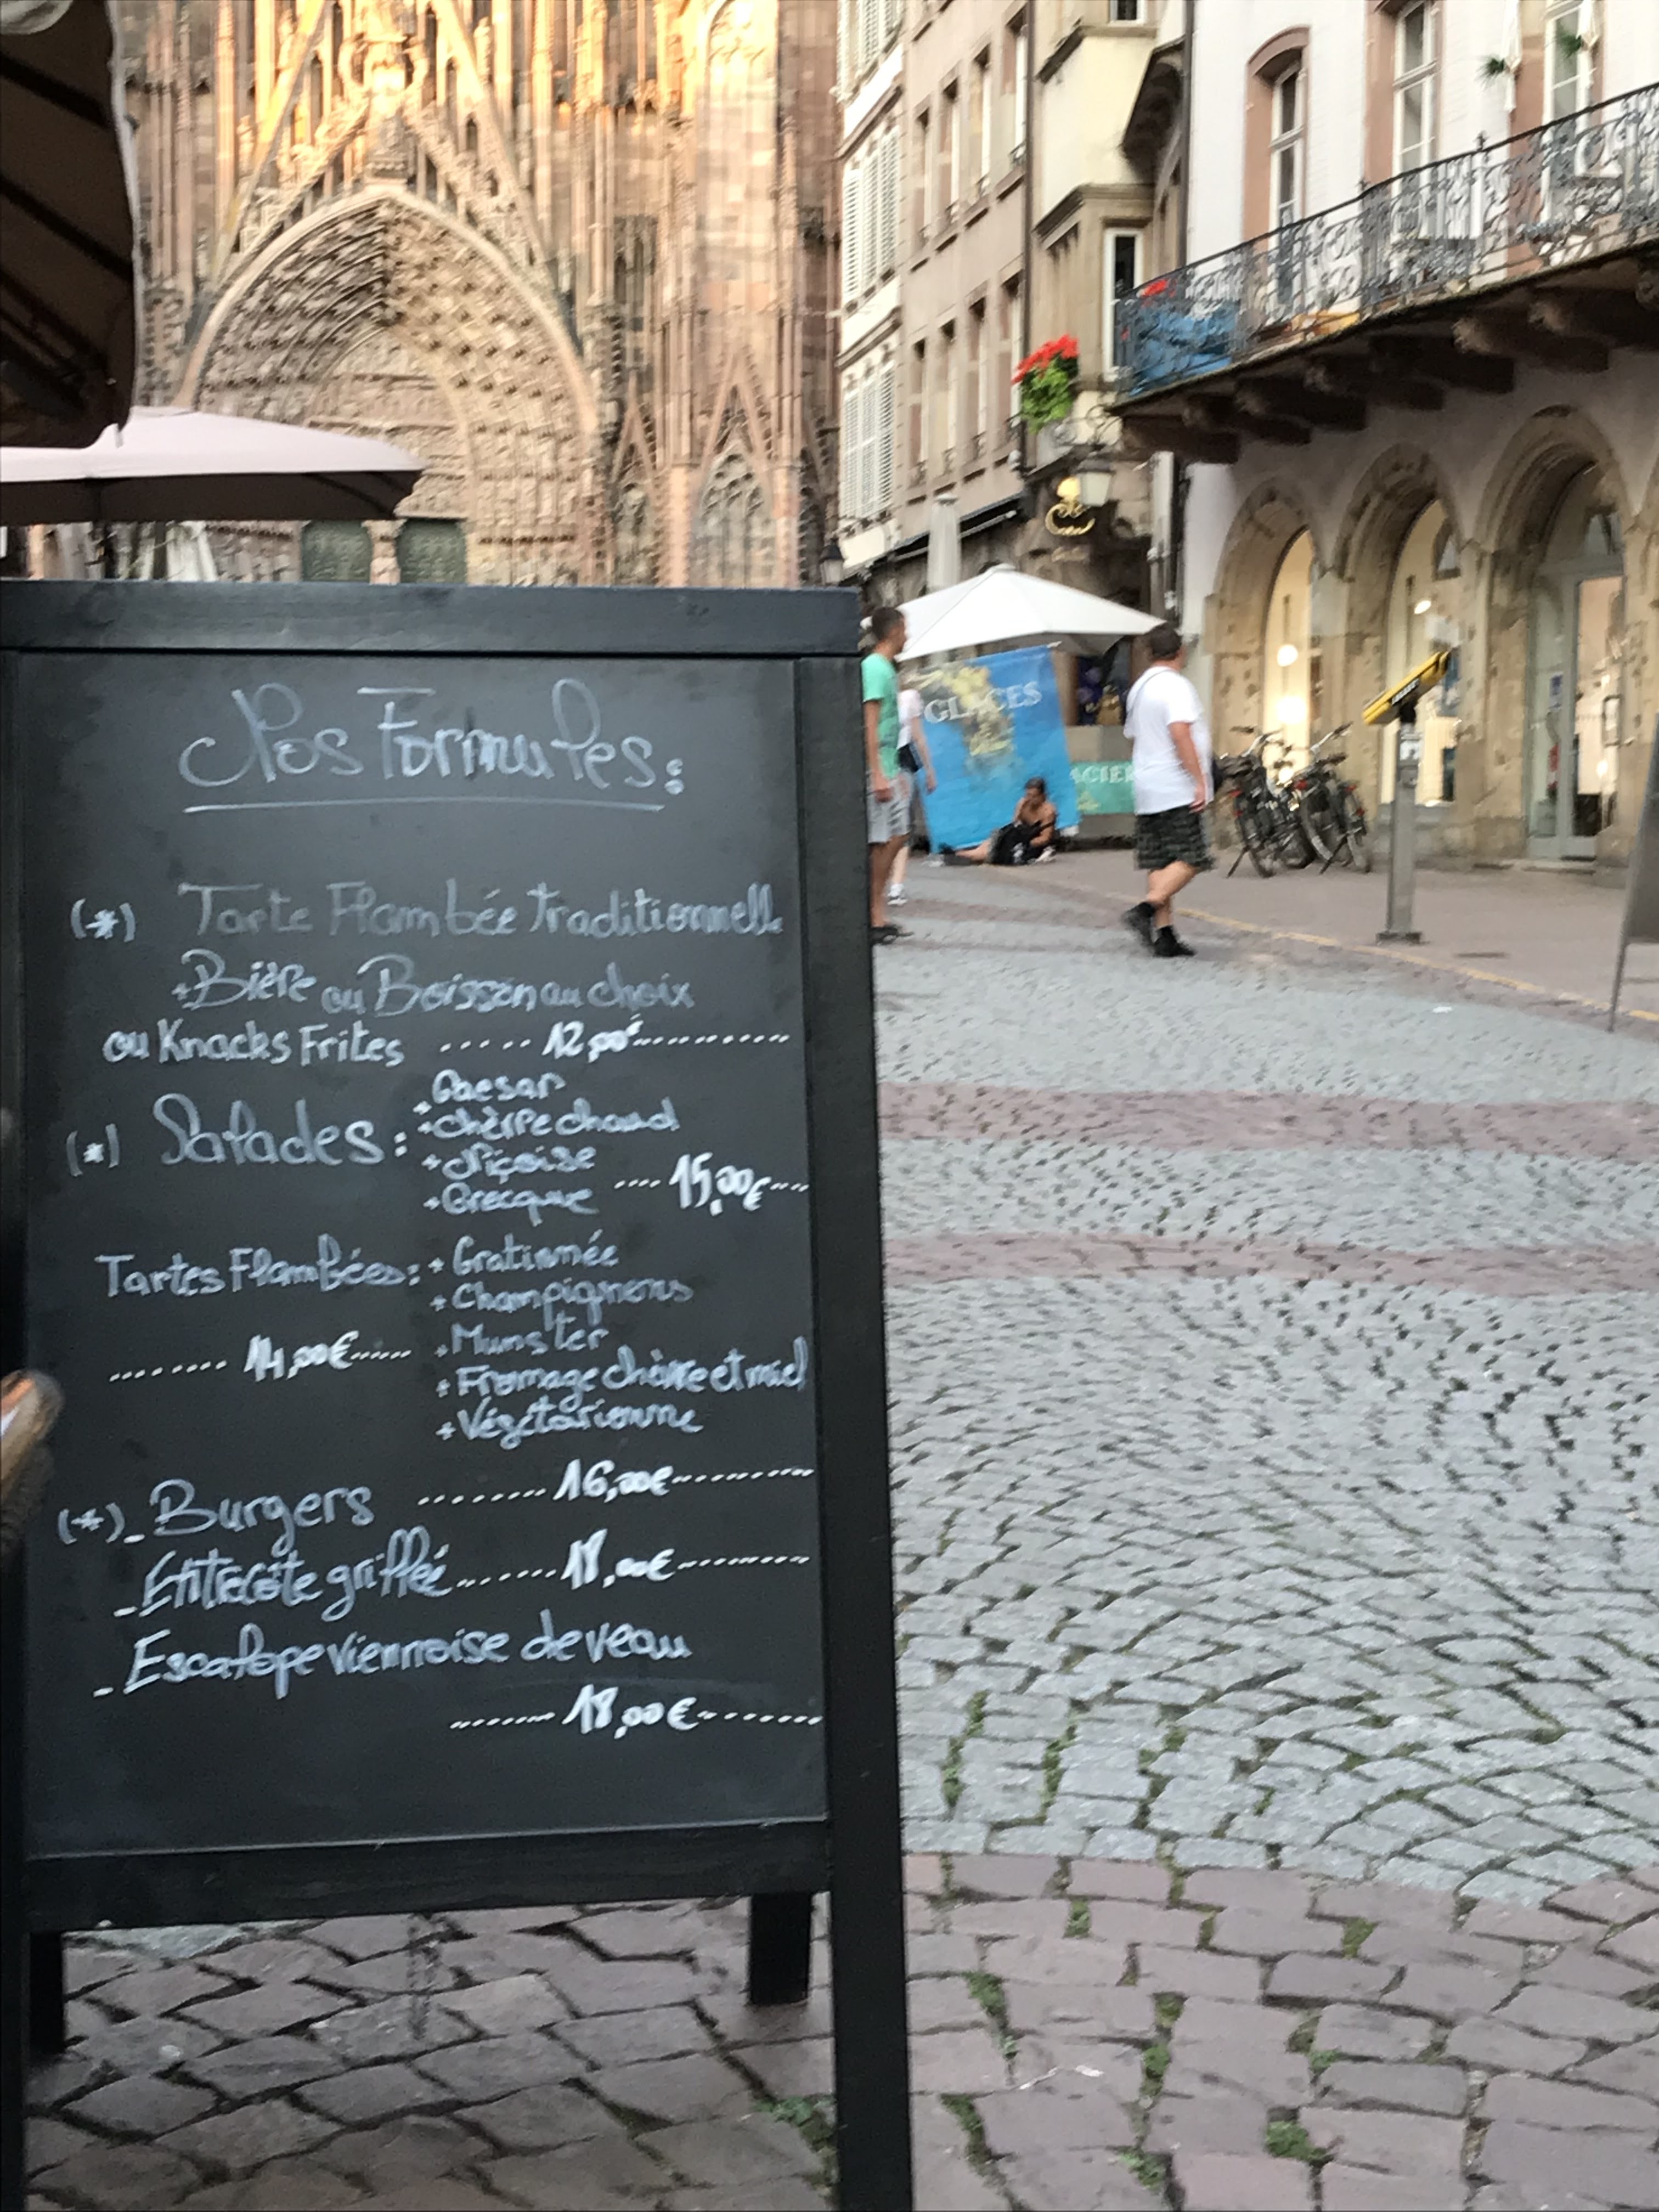 Nos Formules :
(*) Tarte Flambée traditionnelle
+ Bière ou Boisson au choix
ou Knacks Frites ..... 12,00€ ............
(*) Salades : + Caesar
+ Chèvre chaud
+ Niçoise
+ Grecque .... 15,00€ ....
Tartes Flambées : + Gratinnée
+ Champignons
+ Munster
........ 14,00€ ......
+ Fromage chèvre et miel
+ Végétarienne
(*) - Burgers ........ 16,00€ ..........
- Entrecôte grillée ....... 18,00€ .........
- Escalope viennoise de veau
........ 18,00€ ........
GLACES
GLACIER